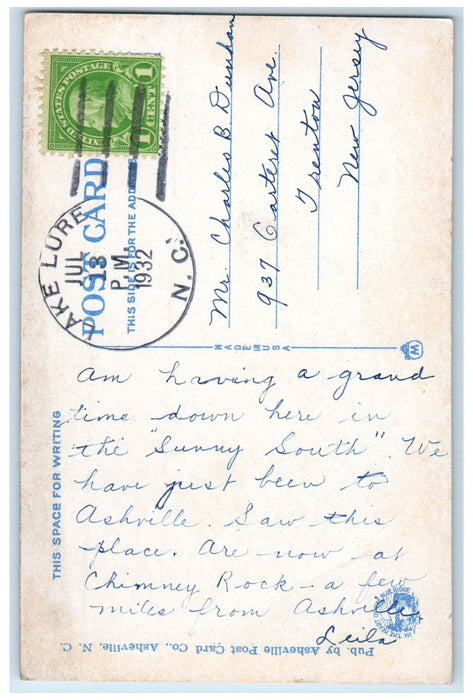 1 CENT 1
UNITED STATES POSTAGE
LAKE LURE
JUL
13
P.M.
1932
N. C.
POST CARD
THIS SIDE IS FOR THE ADDRESS
Mr Charles B Dunham
937 Carteret Ave.
Trenton
New Jersey
MADE IN USA
M
THIS SPACE FOR WRITING
Am having a grand
time down here in
the "Sunny South". We
have just been to
Ashville. Saw this
place. Are now at
Chimney Rock - a few
miles from Ashville.
Leila
Pub. by Asheville Post Card Co., Asheville, N. C.